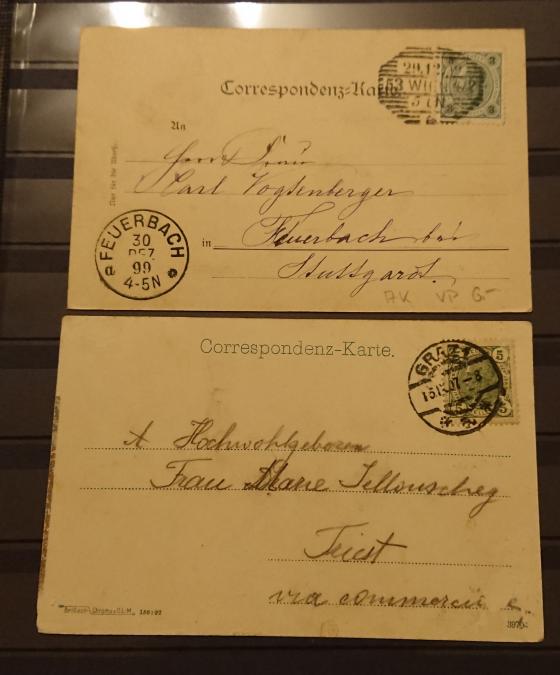 Correspondenz-Karte.
29.12.9
53 WIEN 4/2
5 N
3 3
An
Herrn
Karl Vogtenberger
in Feuerbach bei
Stuttgart.
FEUERBACH
30
DEZ
99
4-5N
AK VP 6-
Correspondenz-Karte.
GRAZ 1
07-8
5
5
Hochwohlgeboren
Frau Marie Jellouscheg
Triest
via commercia
186:02